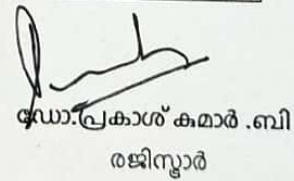 ഡോ.പ്രകാശ് കുമാർ .ബി
രജിസ്ട്രാർ